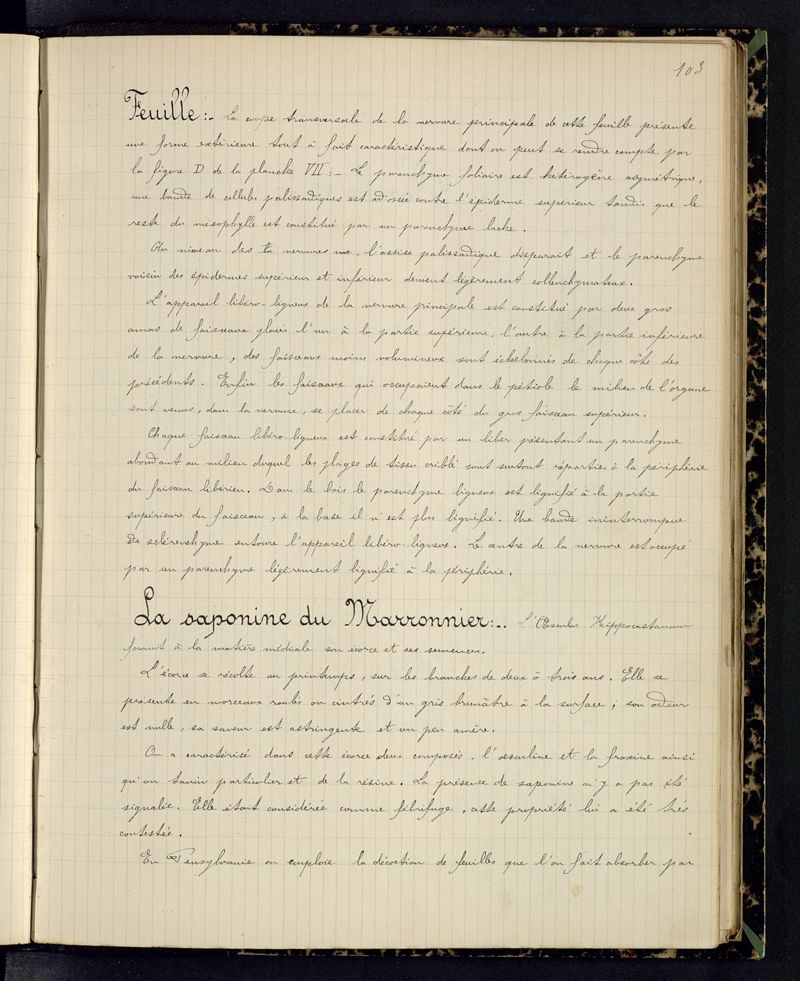 103
Feuille:- La coupe transversale de la nervure principale de cette feuille présente
une forme extérieure tout à fait caractéristique dont on peut se rendre compte par
la figure D de la planche VII:- Le parenchyme foliaire est hétérogène asymétrique,
une bande de cellules palissadiques est adossée contre l'épiderme supérieur tandis que le
reste du mésophylle est constitué par un parenchyme lache.
Au niveau des nervures l'assise palissadique disparait et le parenchyme
voisin des épidermes supérieur et inférieur devient légèrement collenchymateux.
L'appareil libéro-ligneux de la nervure principale est constitué par deux gros
amas de faisceaux placés l'un à la partie supérieure, l'autre à la partie inférieure
de la nervure, des faisceaux moins volumineux sont échelonnés de chaque côté des
précédents. Enfin les faisceaux qui occupaient dans le pétiole le milieu de l'organe
sont venus, dans la nervure, se placer de chaque côté du gros faisceau supérieur.
Chaque faisceau libéro-ligneux est constitué par un liber présentant un parenchyme
abondant au milieu duquel les plages de tissu criblé sont surtout réparties à la périphérie
du faisceau libérien. Dans le bois le parenchyme ligneux est lignifié à la partie
supérieure du faisceau, à la base il n'est plus lignifié. Une bande ininterrompue
de sclérenchyme entoure l'appareil libéro-ligneux. Le centre de la nervure est occupé
par un parenchyme légèrement lignifié à la périphérie.
La saponine du Marronnier:- L'Œsculus Hippocastanum
fournit à la matière médicale son écorce et ses semences.
L'écorce se récolte au printemps, sur les branches de deux à trois ans. Elle se
présente en morceaux roulés ou cintrés d'un gris brunâtre à la surface; son odeur
est nulle, sa saveur est astringente et un peu amère.
On a caractérisé dans cette écorce deux composés, l'œsculine et la fraxine ainsi
qu'un tanin particulier et de la résine. La présence de saponine n'y a pas été
signalée. Elle était considérée comme fébrifuge, cette propriété lui a été très
contestée.
En Pensylvanie on emploie la décoction de feuilles que l'on fait absorber par